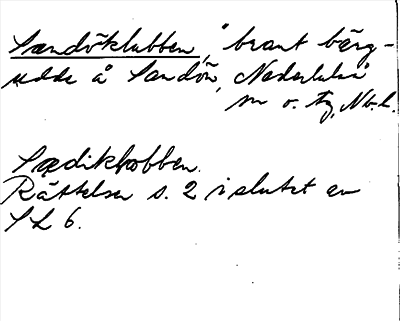 Sandöklubben, "brant bärg-
udde å Sandön, Nederluleå
sn o. tg, Nb. l.
Sædikkobben.
Rättelser s. 2 i slutet av
SL 6.